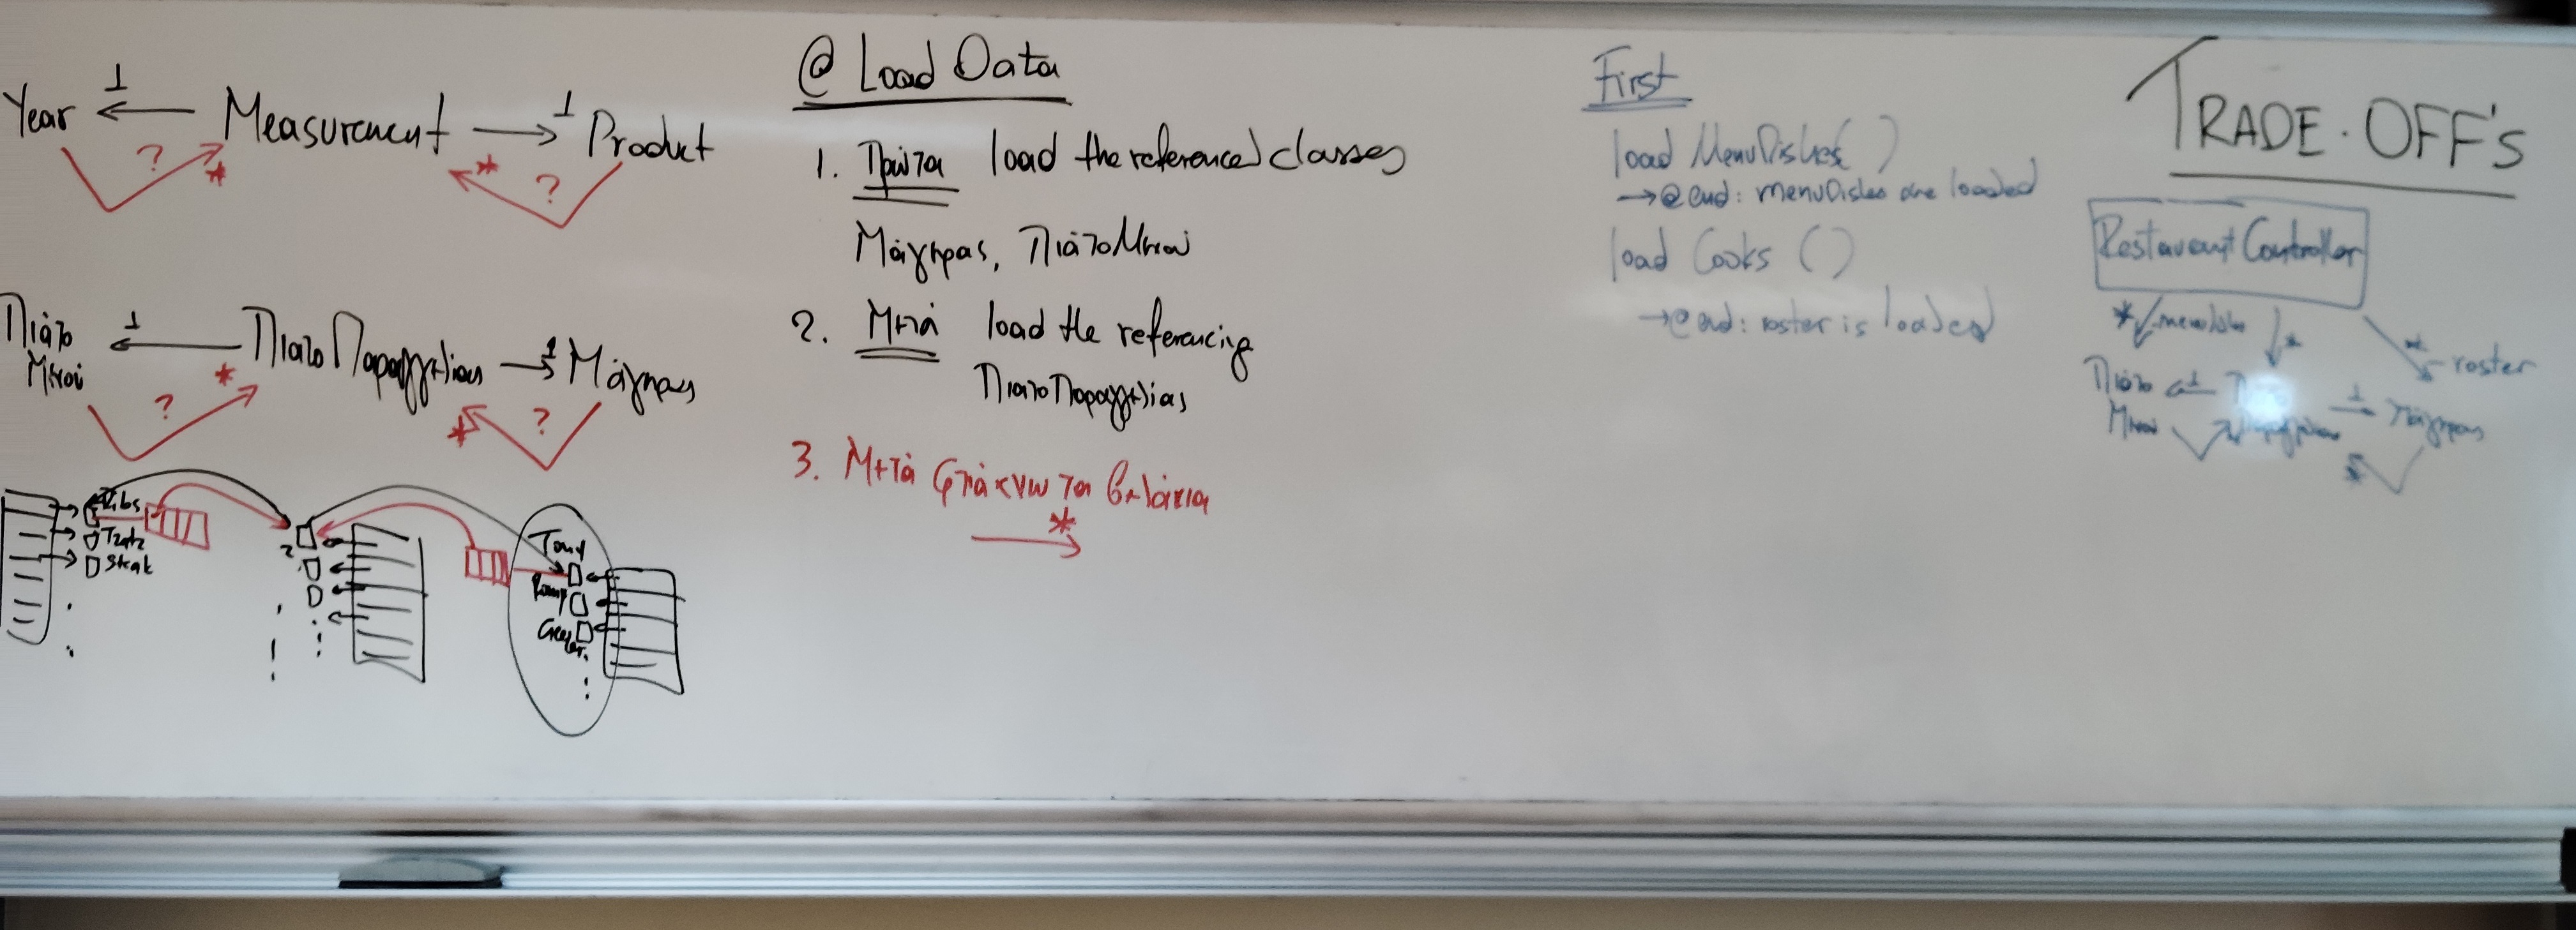 Year
1
Measurement
1
Product
?
*
*
?
Πιάτο
Μενού
1
Πιατο Παραγγελίας
1
Μάγειρας
*
?
*
?
Ribs
Steak
Tony
@ Load Data
1. Πρώτα load the referenced classes
Μάγειρας, ΠιάτοΜενού
2. Μετά load the referencing
ΠιατοΠαραγγελίας
3. Μετά φτιάχνω τα βελάκια
*
First
load MenuDishes( )
→@end: menuDishes are loaded
load Cooks ( )
→@end: roster is loaded
TRADE-OFF'S
Restaurant Controller
*
*
*
roster
Πιάτο
Μενού
1
1
Μάγειρας
*